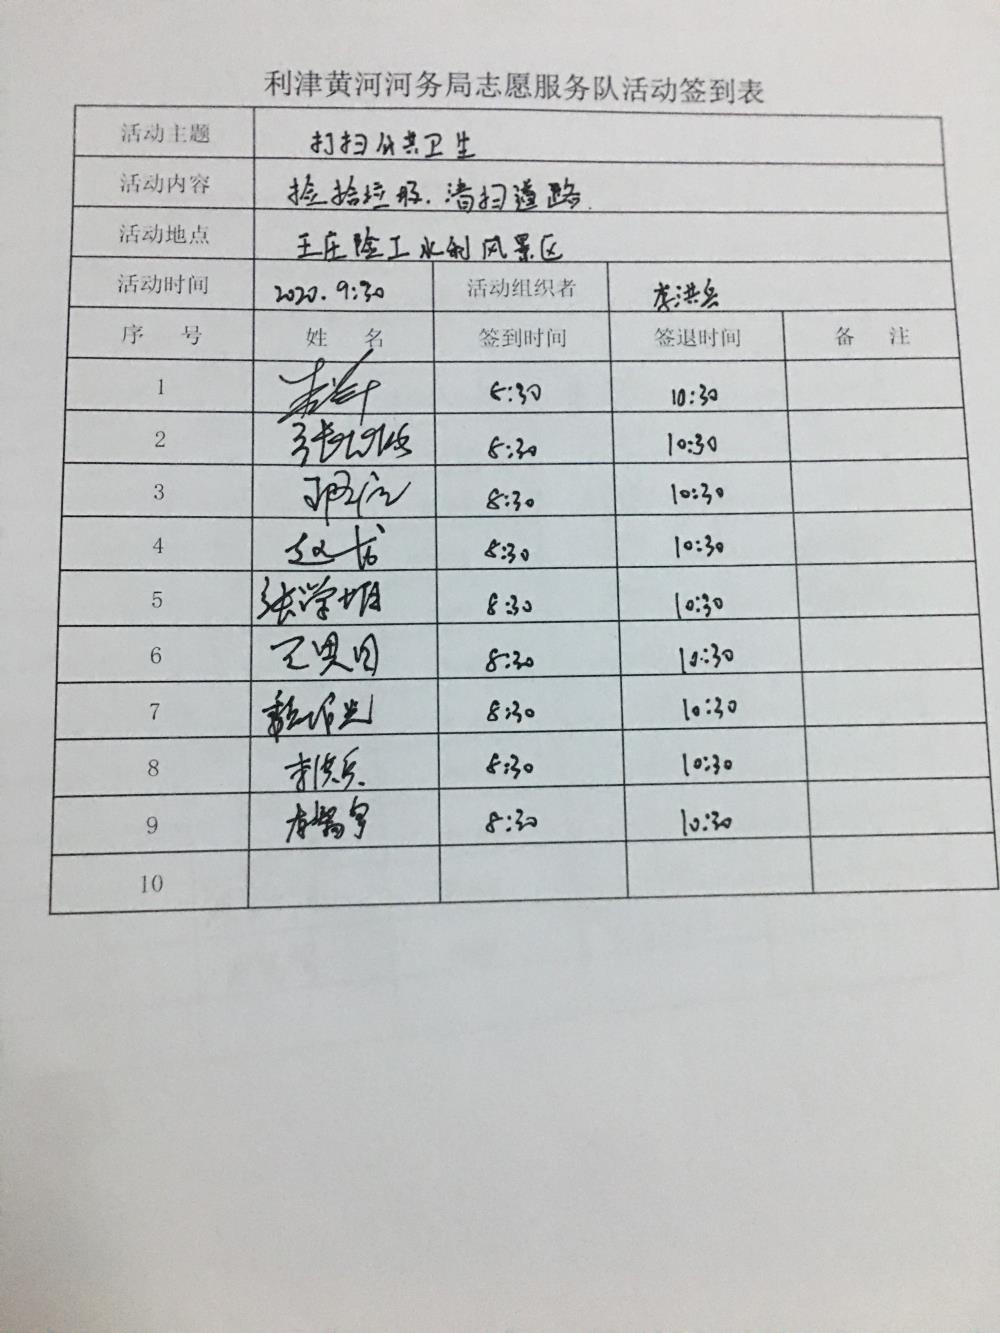 利津黄河河务局志愿服务队活动签到表
活动主题 打扫公共卫生
活动内容 捡拾垃圾、清扫道路
活动地点 王庄险工水利风景区
活动时间 2020.9:30 活动组织者 李洪兵
序 号 姓 名 签到时间 签退时间 备 注
1 8:30 10:30
2 8:30 10:30
3 8:30 10:30
4 赵 8:30 10:30
5 张学 8:30 10:30
6 王 8:30 10:30
7 8:30 10:30
8 李洪兵 8:30 10:30
9 8:30 10:30
10